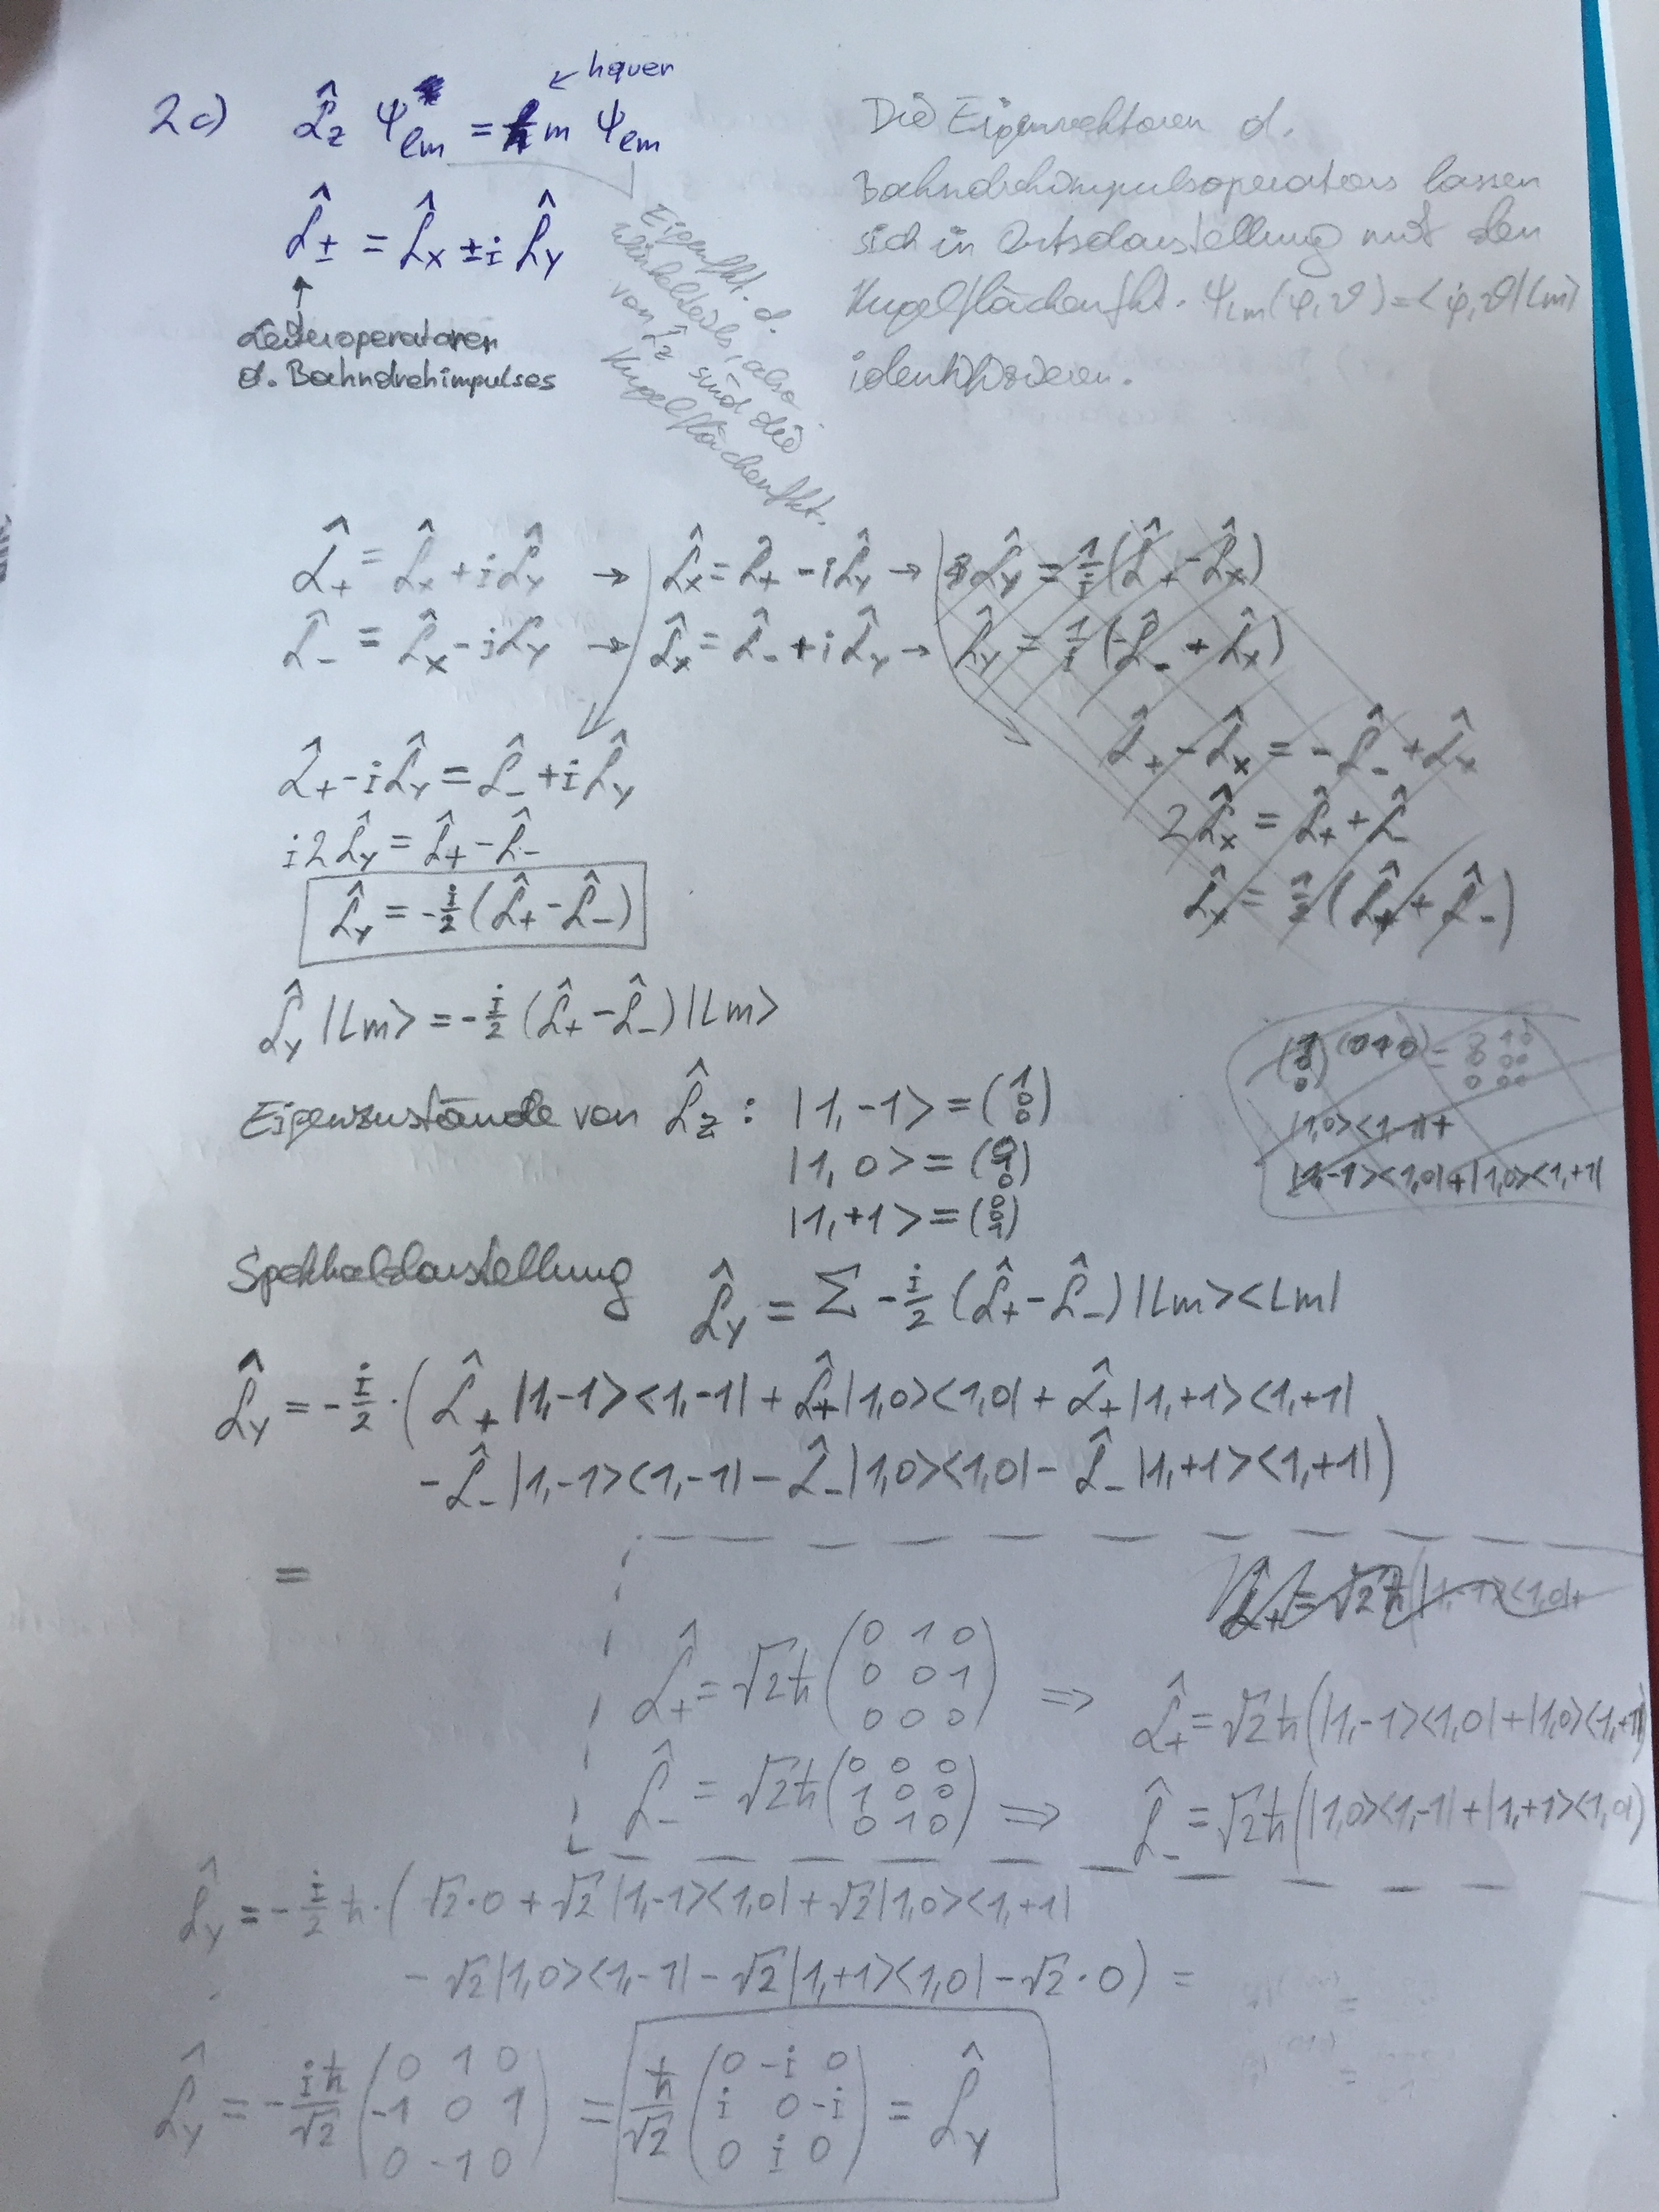 2c) L̂z Ψlm = ħ m Ψlm
← hquer
L̂± = L̂x ± i L̂y
Leiteroperatoren
d. Bahndrehimpulses
Eigenfkt. d.
Winkelteils, also
von L̂z sind die
Kugelflächenfkt.
Die Eigenvektoren d.
Bahndrehimpulsoperators lassen
sich in Ortsdarstellung mit den
Kugelflächenfkt. Ψlm(φ,ϑ)=<φ,ϑ|lm>
identifizieren.
L̂+ = L̂x + iL̂y → L̂x = L̂+ - iL̂y → L̂y = 1/i (L̂+ - L̂x)
L̂- = L̂x - iL̂y → L̂x = L̂- + iL̂y → L̂y = 1/i (-L̂- + L̂x)
L̂+ - L̂x = -L̂- + L̂x
2L̂x = L̂+ + L̂-
L̂x = 1/2 (L̂+ + L̂-)
L̂+ - iL̂y = L̂- + iL̂y
i2L̂y = L̂+ - L̂-
L̂y = -i/2 (L̂+ - L̂-)
L̂y |lm> = -i/2 (L̂+ - L̂-) |lm>
Eigenzustände von L̂z : |1,-1> = (1 0 0)
|1,0> = (0 1 0)
|1,+1> = (0 0 1)
(1 0 0) (0 1 0) = 0 1 0
0 0 0
0 0 0
|1,0><1,-1| +
|1,-1><1,0| + |1,0><1,+1|
Spektraldarstellung L̂y = Σ -i/2 (L̂+ - L̂-) |lm><lm|
L̂y = -i/2 · ( L̂+ |1,-1><1,-1| + L̂+ |1,0><1,0| + L̂+ |1,+1><1,+1|
- L̂- |1,-1><1,-1| - L̂- |1,0><1,0| - L̂- |1,+1><1,+1| )
=
L̂+ = √2ħ | 1,-1><1,0| +
L̂+ = √2ħ (0 1 0
0 0 1
0 0 0) ⇒ L̂+ = √2ħ (|1,-1><1,0| + |1,0><1,+1|
L̂- = √2ħ (0 0 0
1 0 0
0 1 0) ⇒ L̂- = √2ħ (|1,0><1,-1| + |1,+1><1,0|)
L̂y = -i/2 ħ · ( √2·0 + √2 |1,-1><1,0| + √2 |1,0><1,+1|
- √2 |1,0><1,-1| - √2 |1,+1><1,0| - √2·0 ) =
L̂y = - iħ/√2 (0 1 0
-1 0 1
0 -1 0) = ħ/√2 (0 -i 0
i 0 -i
0 i 0) = L̂y